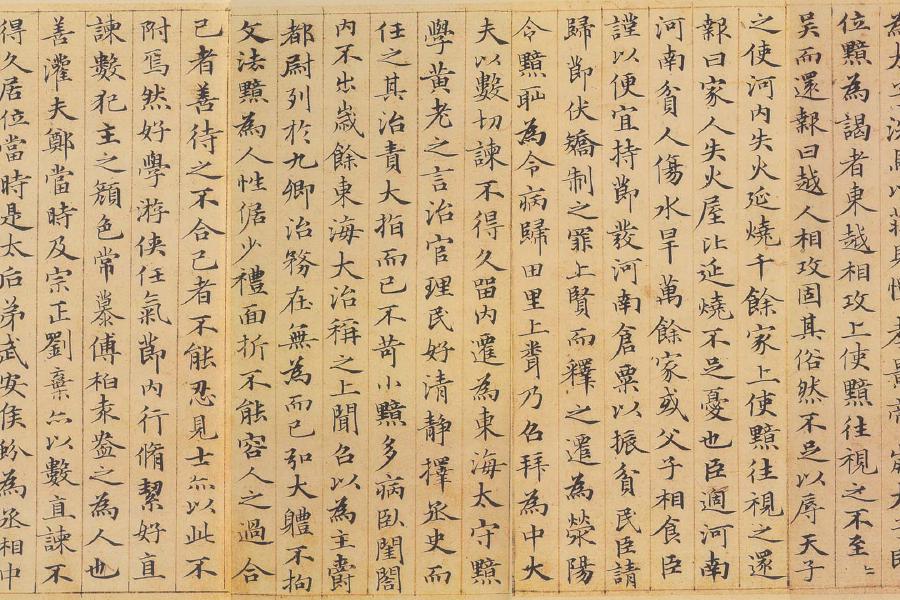 為太子洗馬以莊見憚孝景帝崩太子即
位黯為謁者東越相攻上使黯往視之不至=
吴而還報曰越人相攻固其俗然不足以辱天子
之使河内失火延燒千餘家上使黯往視之還
報曰家人失火屋比延燒不足憂也臣過河南
河南貧人傷水旱萬餘家或父子相食臣
謹以便宜持節發河南倉粟以振貧民臣請
歸節伏矯制之罪上賢而釋之遷為滎陽
令黯恥為令病歸田里上聞乃召拜為中大
夫以數切諫不得久留内遷為東海太守黯
學黄老之言治官理民好清静擇丞史而
任之其治責大指而已不苛小黯多病臥閨閤
内不出歲餘東海大治稱之上聞召以為主爵
都尉列於九卿治務在無為而已弘大體不拘
文法黯為人性倨少禮面折不能容人之過合
己者善待之不合己者不能忍見士亦以此不
附焉然好學游俠任氣節内行脩絜好直
諫數犯主之顔色常慕傅柏袁盎之為人也
善灌夫鄭當時及宗正劉棄亦以數直諫不
得久居位當時是太后弟武安侯蚡為丞相中